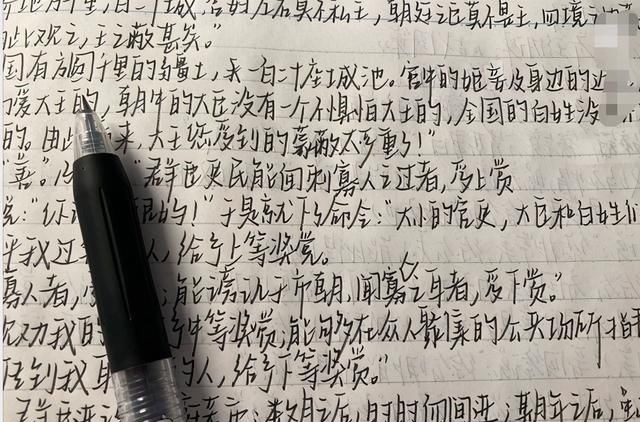 地方千里,百二十城,宫妇左右莫不私王,朝廷之臣莫不畏王,四境之内
此观之,王之蔽甚矣。"
国有方圆千里的疆土,一百二十座城池。宫中的姬妾及身边的近
爱大王的,朝中的大臣没有一个不惧怕大王的,全国的百姓没
的。由此 来,大王您受到的蒙蔽太多重了!"
"善。" "群臣吏民能面刺寡人之过者,受上赏
说:" !"于是就下了命令:"大小的官吏,大臣和百姓们
我过 人,给予上等奖赏。
寡人者, 能谤讥于市朝,闻寡人之耳者,受下赏。"
劝我的 中等奖赏;能够在众人聚集的公共场所指
传到我耳 的人,给予下等奖赏。"
数月之后,时时而间进;期年之后,虽